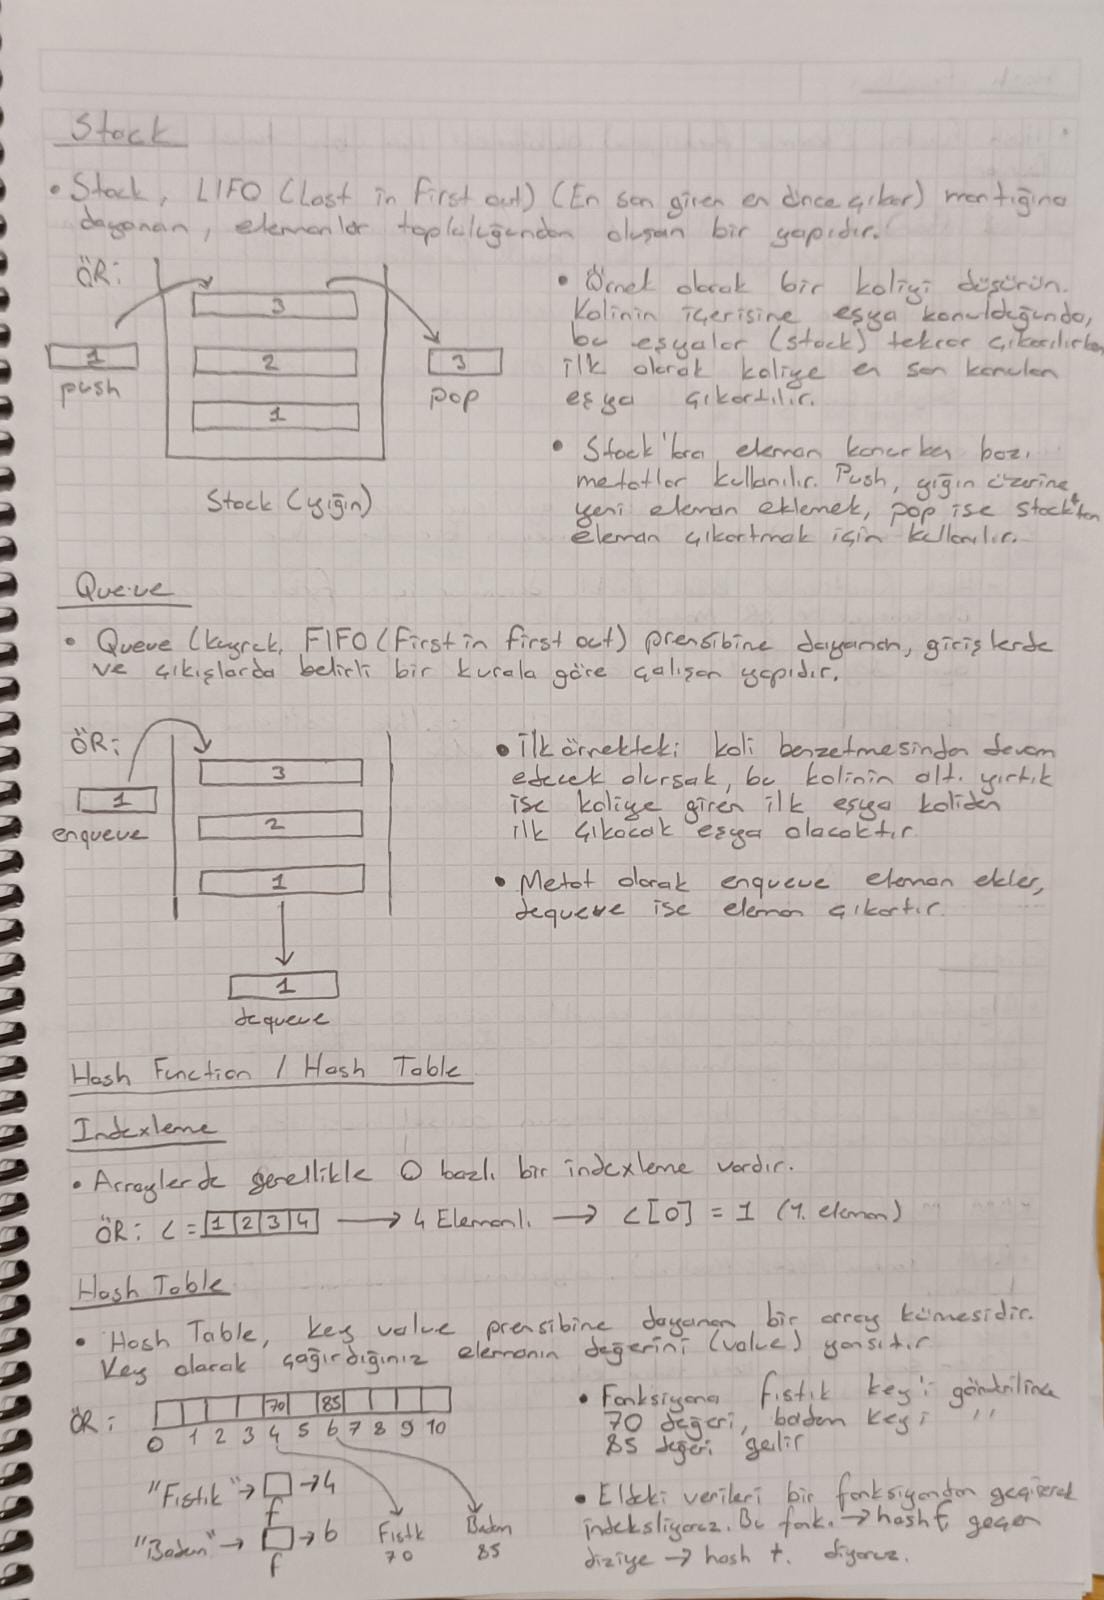 Stack
• Stack, LIFO (Last in First out) (En son giren en önce çıkar) mantığına
dayanan, elemanlar topluluğundan oluşan bir yapıdır.
ÖR:
3
2
1
1
push
3
pop
Stack (yığın)
• Örnek olarak bir koliyi düşünün.
Kolinin içerisine eşya konulduğunda,
bu eşyalar (stack) tekrar çıkarılırken
ilk olarak koliye en son konulan
eşya çıkartılır.
• Stack'lara eleman konurken bazı
metotlar kullanılır. Push, yığın üzerine
yeni eleman eklemek, pop ise stack'tan
eleman çıkartmak için kullanılır.
Queue
• Queue (kuyruk, FIFO (First in first out) prensibine dayanan, girişlerde
ve çıkışlarda belirli bir kurala göre çalışan yapıdır.
ÖR:
1
enqueue
3
2
1
1
dequeue
• İlk örnekteki koli benzetmesinden devam
edecek olursak, bu kolinin altı yırtık
ise koliye giren ilk eşya koliden
ilk çıkacak eşya olacaktır.
• Metot olarak enqueue eleman ekler,
dequeue ise eleman çıkartır.
Hash Function / Hash Table
Indexleme
• Arraylerde genellikle 0 bazlı bir indexleme vardır.
ÖR: L = 1 2 3 4 → 4 Elemanlı → L[0] = 1 (1. eleman)
Hash Table
• Hash Table, key value prensibine dayanan bir array kümesidir.
Key olarak çağırdığınız elemanın değerini (value) yansıtır.
ÖR:
70 85
0 1 2 3 4 5 6 7 8 9 10
"Fıstık" → → 4
f
"Badem" → → 6
f
Fıstık
70
Badem
85
• Fonksiyona fıstık key'i gönderilince
70 değeri, badem key'i ''
85 değeri gelir
• Eldeki verileri bir fonksiyondan geçirerek
indeksliyoruz. Bu fonk. → hash f, geçen
diziye → hash t. diyoruz.